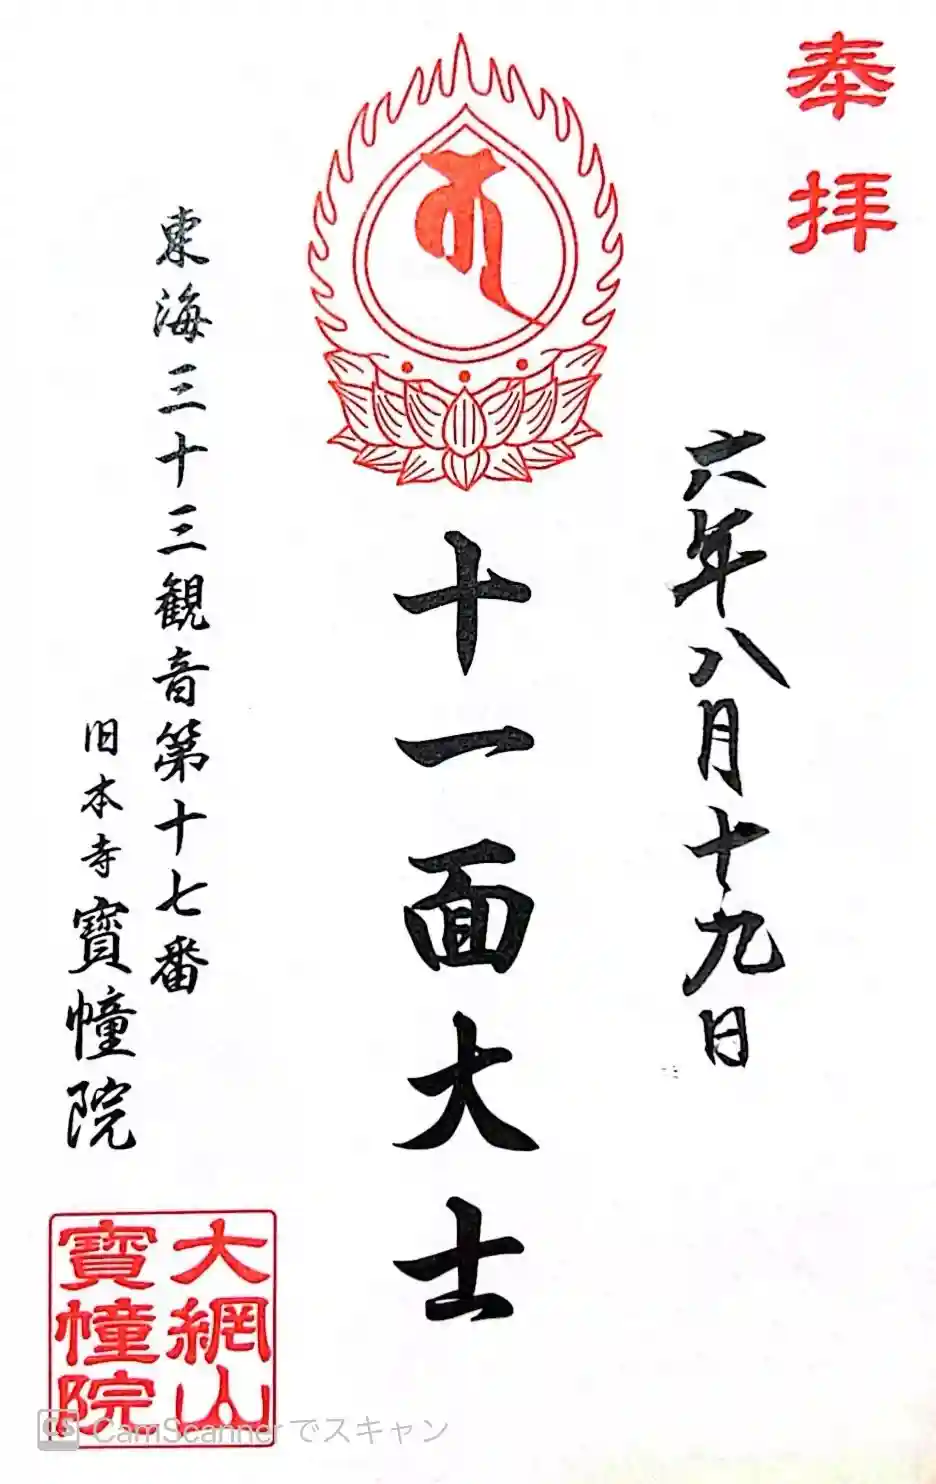 奉拝
六年八月十九日
十一面大士
東海三十三観音第十七番
旧本寺寶幢院
大網山
寶幢院
CS CamScanner でスキャン